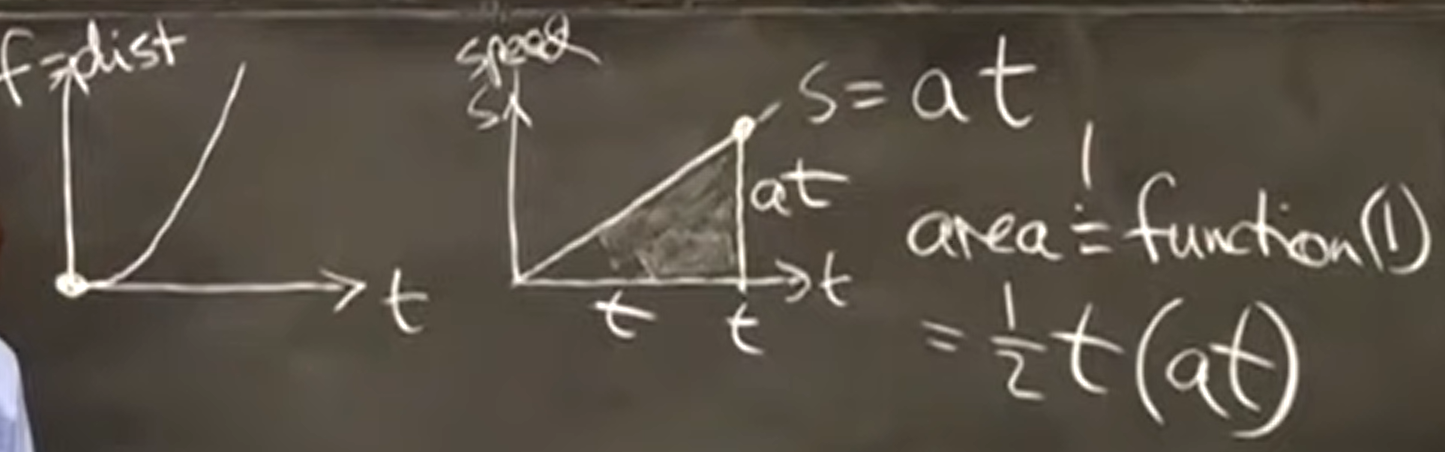 f=dist
t
speed
s
s=at
at
t
t
t
area = function(1)
= 1/2 t(at)